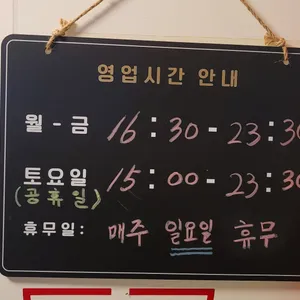 영업시간 안내
월 - 금 16:30 - 23:30
토요일 15:00 - 23:30
(공휴일)
휴무일: 매주 일요일 휴무